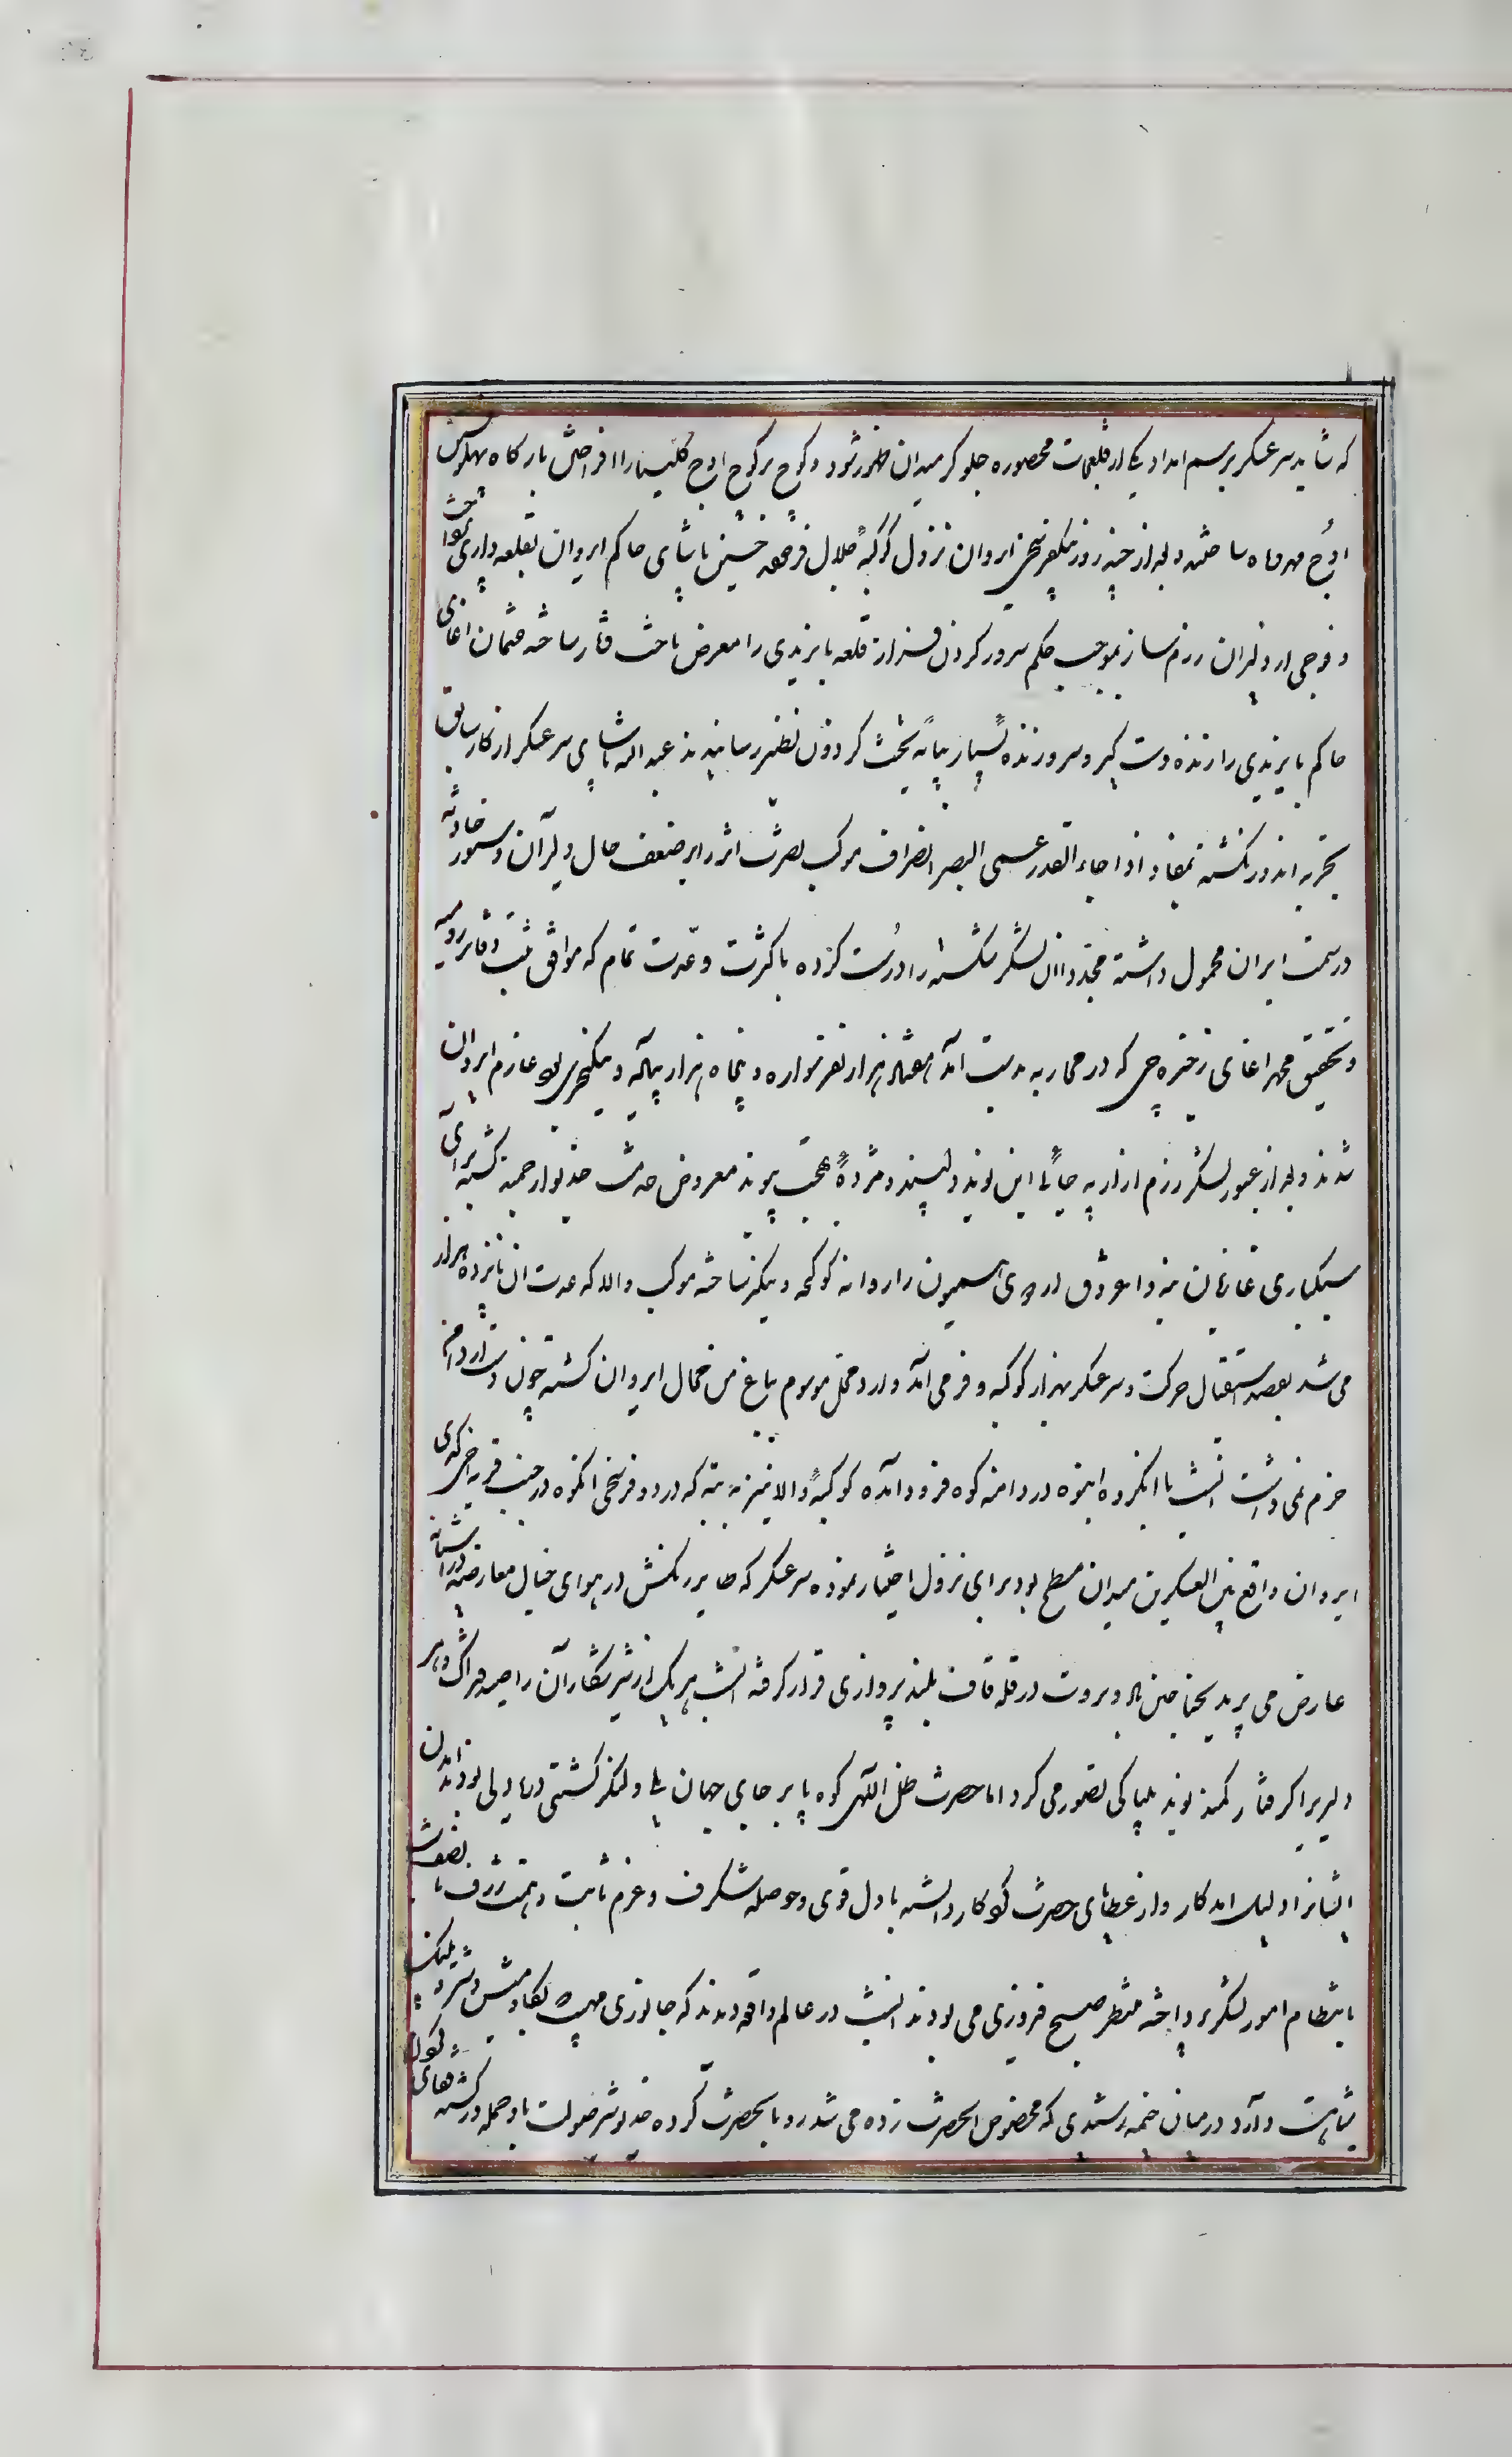 که شاید سرعسکر برسم امداد یکی از قلعجات محصوره جلوگر میدان ظهور شود و کوچ بر کوچ اوچ کلیسا را از افراختن بارگاه سپهر اساس
اوج مهر و ماه ساخته و بعد از چند روز یکفرسخی ایروان نزول کوکبهٔ جلال فرموده حسین پاشای حاکم ایروان بقلعه داری پرداخت
و فوجی از دلیران رزم ساز بموجب حکم سرور گردن فراز قلعه بایزیدی را معرض تاخت و تار ساخته عثمان اغای
حاکم بایزیدی را زنده دستگیر و سر و زندهٔ بسیار بپایهٔ تخت گردون نظیر رسانیدند عبدالله پاشای سرعسکر از کار سابق
تجربه اندوز نگشته بمفاد اذا جاء القدر عمی البصر انصراف موکب نصرت اثر را بر ضعف حال دلیران و سنوح حادثه
در سمت ایران محمول داشته مجددا ان لشکر شکسته را درست کرده با کثرت و عدت تمام که موافق ثبت دفاتر رومیه
و تحقیق محمد اغای ذخیره چی که در محاربه بدست آمد هفتاد هزار نفر سواره و پنجاه هزار پیاده و ینکچری بود عازم ایروان
شدند و بعد از عبور لشکر روم از ارپه چائی این نوید دلپسند و مژدهٔ بهجت پیوند معروض خدمت خدیو ارجمند گشته برای
سبکباری غازیان بنه و اغروق اردوی همیون را روانه کوکچه دنکیز ساخته موکب والا که عدت ان پانزده هزار
می شد بقصد استقبال حرکت و سرعسکر بهزار کوکبه و فر می آمد وارد محل موسوم بباغ من محال ایروان گشته چون دست از دامن
حزم نمی داشت انشب با انگروه انبوه در دامنه کوه فرود آمده کوکبهٔ والا نیز به تپه که در دو فرسخی انکوه در جنب قریه اخی کندی
ایروان واقع و بین العسکرین میدان مسطح بود برای نزول اختیار نموده سرعسکر که طایر رنگش در هوای خیال معارضه از اشیانه
عارض می پرید بجناحین باد و بروت در قله قاف بلند پروازی قرار گرفته انشب هر یک از شیر شکاران را صید فتراک و هر
دلیر را گرفتار کمند نوید بیباکی تصور می کرد اما حضرت ظل اللهی کوه پابرجای جهان و لنگر کشتی دریا دلی بودند ان
ایشانرا دلیل امد کار و از عطیهای حضرت کردکار دانسته با دل قوی و حوصله شگرف و عزم ثابت و همت ژرف با نصفت
بانتظام امور لشکر پرداخته منتظر صبح فیروزی می بودند انشب در عالم واقعه دیدند که جانوری مهیب که بکاو میش و شیر و پلنگ
شباهت دارد درمیان خیمه رشیدی که مخصوص انحضرت زده می شد رو بانحضرت کرده خدیو شیر صولت باو حمله ور گشته